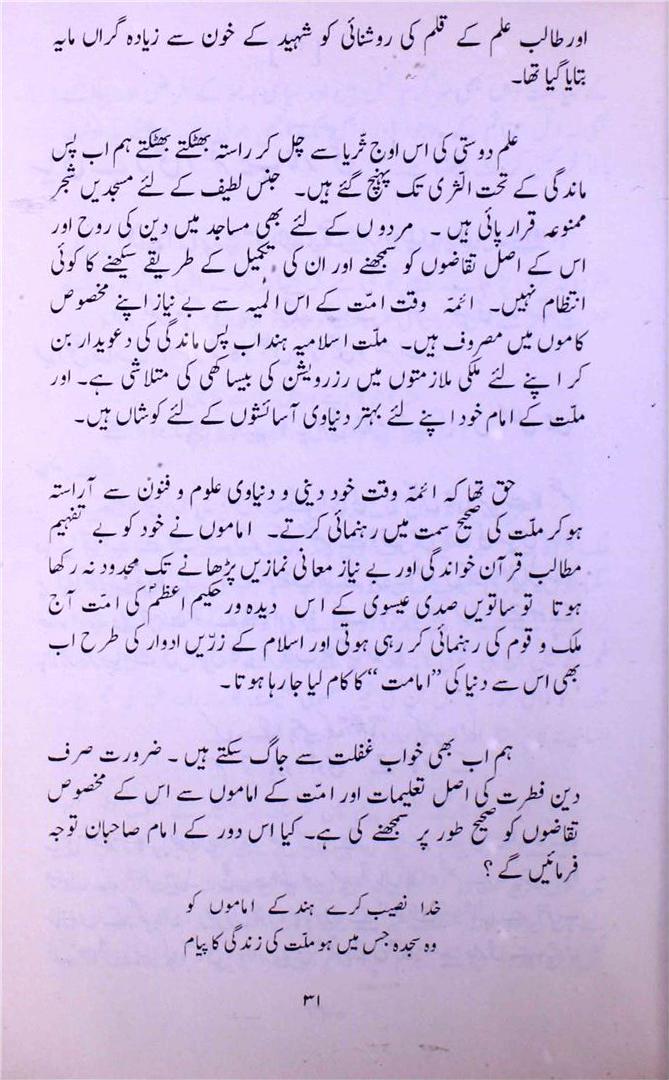 اور طالب علم کے قلم کی روشنائی کو شہید کے خون سے زیادہ گراں مایہ
بتایا گیا تھا۔
علم دوستی کی اس اوج ثریا سے چل کر راستہ بھٹکتے بھٹکتے ہم اب پس
ماندگی کے تحت الثریٰ تک پہنچ گئے ہیں۔ جنس لطیف کے لئے مسجدیں شجر
ممنوعہ قرار پائی ہیں ۔ مردوں کے لئے بھی مساجد میں دین کی روح اور
اس کے اصل تقاضوں کو سمجھنے اور ان کی تکمیل کے طریقے سیکھنے کا کوئی
انتظام نہیں۔ ائمہ وقت امت کے اس المیہ سے بے نیاز اپنے مخصوص
کاموں میں مصروف ہیں۔ ملّت اسلامیہ ہند اب پس ماندگی کی دعویدار بن
کر اپنے لئے ملکی ملازمتوں میں رزرویشن کی بیساکھی کی متلاشی ہے۔ اور
ملّت کے امام خود اپنے لئے بہتر دنیاوی آسائشوں کے لئے کوشاں ہیں۔
حق تھا کہ ائمہ وقت خود دینی و دنیاوی علوم و فنون سے آراستہ
ہو کر ملّت کی صحیح سمت میں رہنمائی کرتے۔ اماموں نے خود کو بے تفہیم
مطالب قرآن خواندگی اور بے نیاز معانی نمازیں پڑھانے تک محدود نہ رکھا
ہوتا تو ساتویں صدی عیسوی کے اس دیدہ ور حکیم اعظمؐ کی امّت آج
ملک و قوم کی رہنمائی کر رہی ہوتی اور اسلام کے زرّیں ادوار کی طرح اب
بھی اس سے دنیا کی ”امامت“ کا کام لیا جا رہا ہوتا۔
ہم اب بھی خواب غفلت سے جاگ سکتے ہیں ۔ ضرورت صرف
دین فطرت کی اصل تعلیمات اور امّت کے اماموں سے اس کے مخصوص
تقاضوں کو صحیح طور پر سمجھنے کی ہے۔ کیا اس دور کے امام صاحبان توجہ
فرمائیں گے ؟
خدا نصیب کرے ہند کے اماموں کو
وہ سجدہ جس میں ہو ملّت کی زندگی کا پیام
۳۱